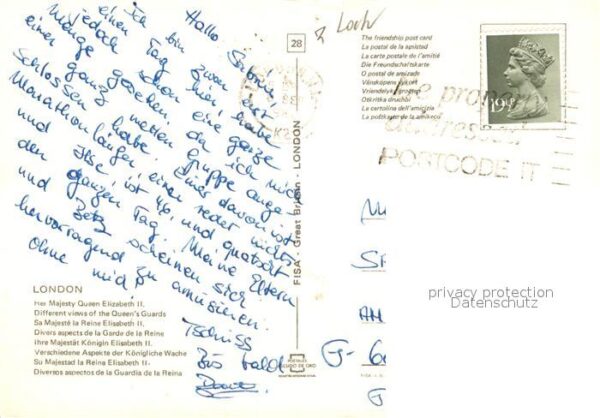 Hallo Sabine,
Ich bin zwar erst
einen Tag hier, habe
jedoch schon eine ganze
Menge gesehen, da ich mich
einer ganz netten Gruppe ange-
schlossen habe. Einer davon ist
Marathonläufer, einer redet nichts
und Ilse, ist 46, und quatscht
den ganzen Tag. Meine Eltern
und scheinen sich
hervorragend zu amüsieren.
ohne mich
Tschüss
Bis bald
28
The friendship post card
La postal de la amistad
La carte postale de l'amitié
Die Freundschaftskarte
O postal de amizade
Vänskapens vykort
Vriendelyke groeten
Otkritka druchbi
La cartolina dell'amicizia
19½P
be properly
addressed
POSTCODE IT
FISA - Great Britain - LONDON
LONDON
Her Majesty Queen Elizabeth II.
Different views of the Queen's Guards
Sa Majesté la Reine Elizabeth II.
Divers aspects de la Garde de la Reine
Ihre Majestät Königin Elisabeth II.
Verschiedene Aspekte der Königliche Wache
Su Majestad la Reina Elisabeth II-
Diversos aspectos de la Guardia de la Reina
POSTALES
ESCUDO DE ORO
privacy protection
Datenschutz
G-6